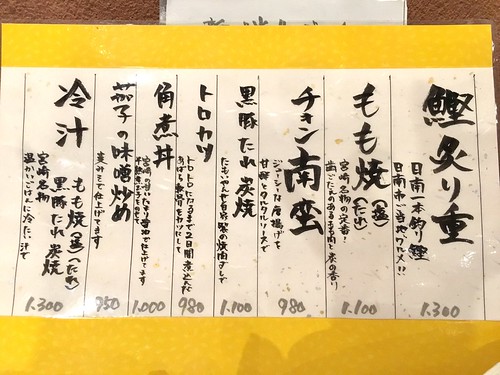 鰹炙り重
日南一本釣り鰹
日南市ご当地グルメ!!
1.300
もも焼(塩)(たれ)
宮崎名物の定番!
歯ごたえのあるもも肉と炭の香り
1.100
チキン南蛮
ジューシーな唐揚げを
甘酢とタルタルソースで
980
黒豚たれ炭焼
1.100
トロカツ
トロトロになるまで2日間煮込んだ
あばら軟骨をカツにして
980
角煮丼
宮崎の甘いたまり醤油で仕上げてます
1.000
茄子の味噌炒め
麦みそで仕上げてます
950
冷汁
もも焼(塩)(たれ)
黒豚たれ炭焼
宮崎名物
温かいごはんに冷たい汁で
1.300